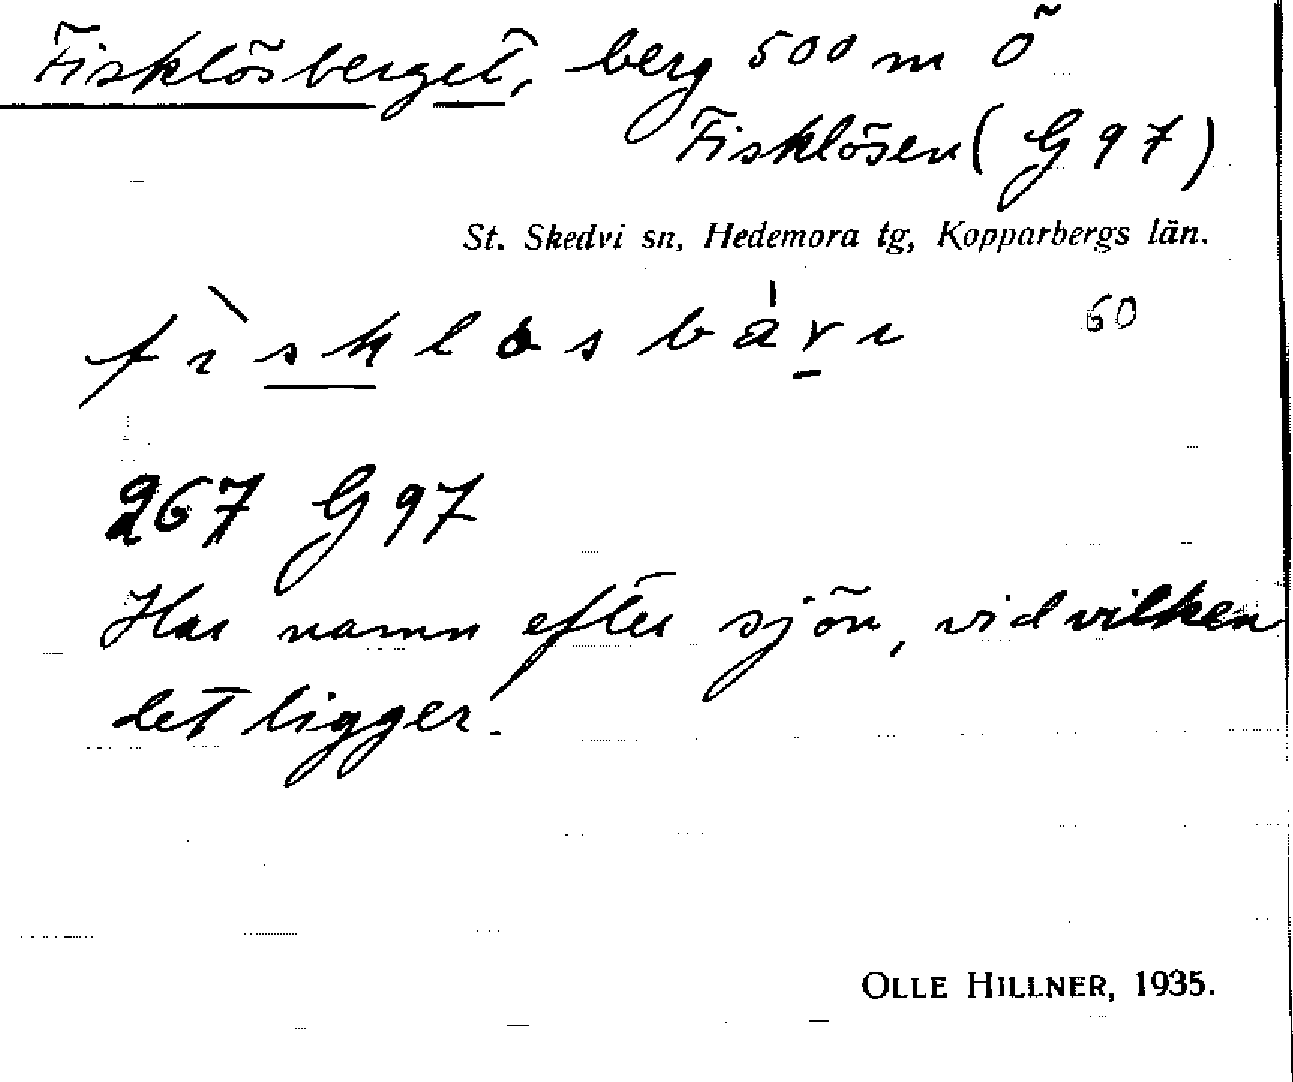 Fisklösberget, berg 500 m Ö
Fisklösen (G 97)
St. Skedvi sn, Hedemora tg, Kopparbergs län.
fìsklosbàrı 60
267 G 97
Har namn efter sjön, vid vilken
det ligger.
OLLE HILLNER, 1935.